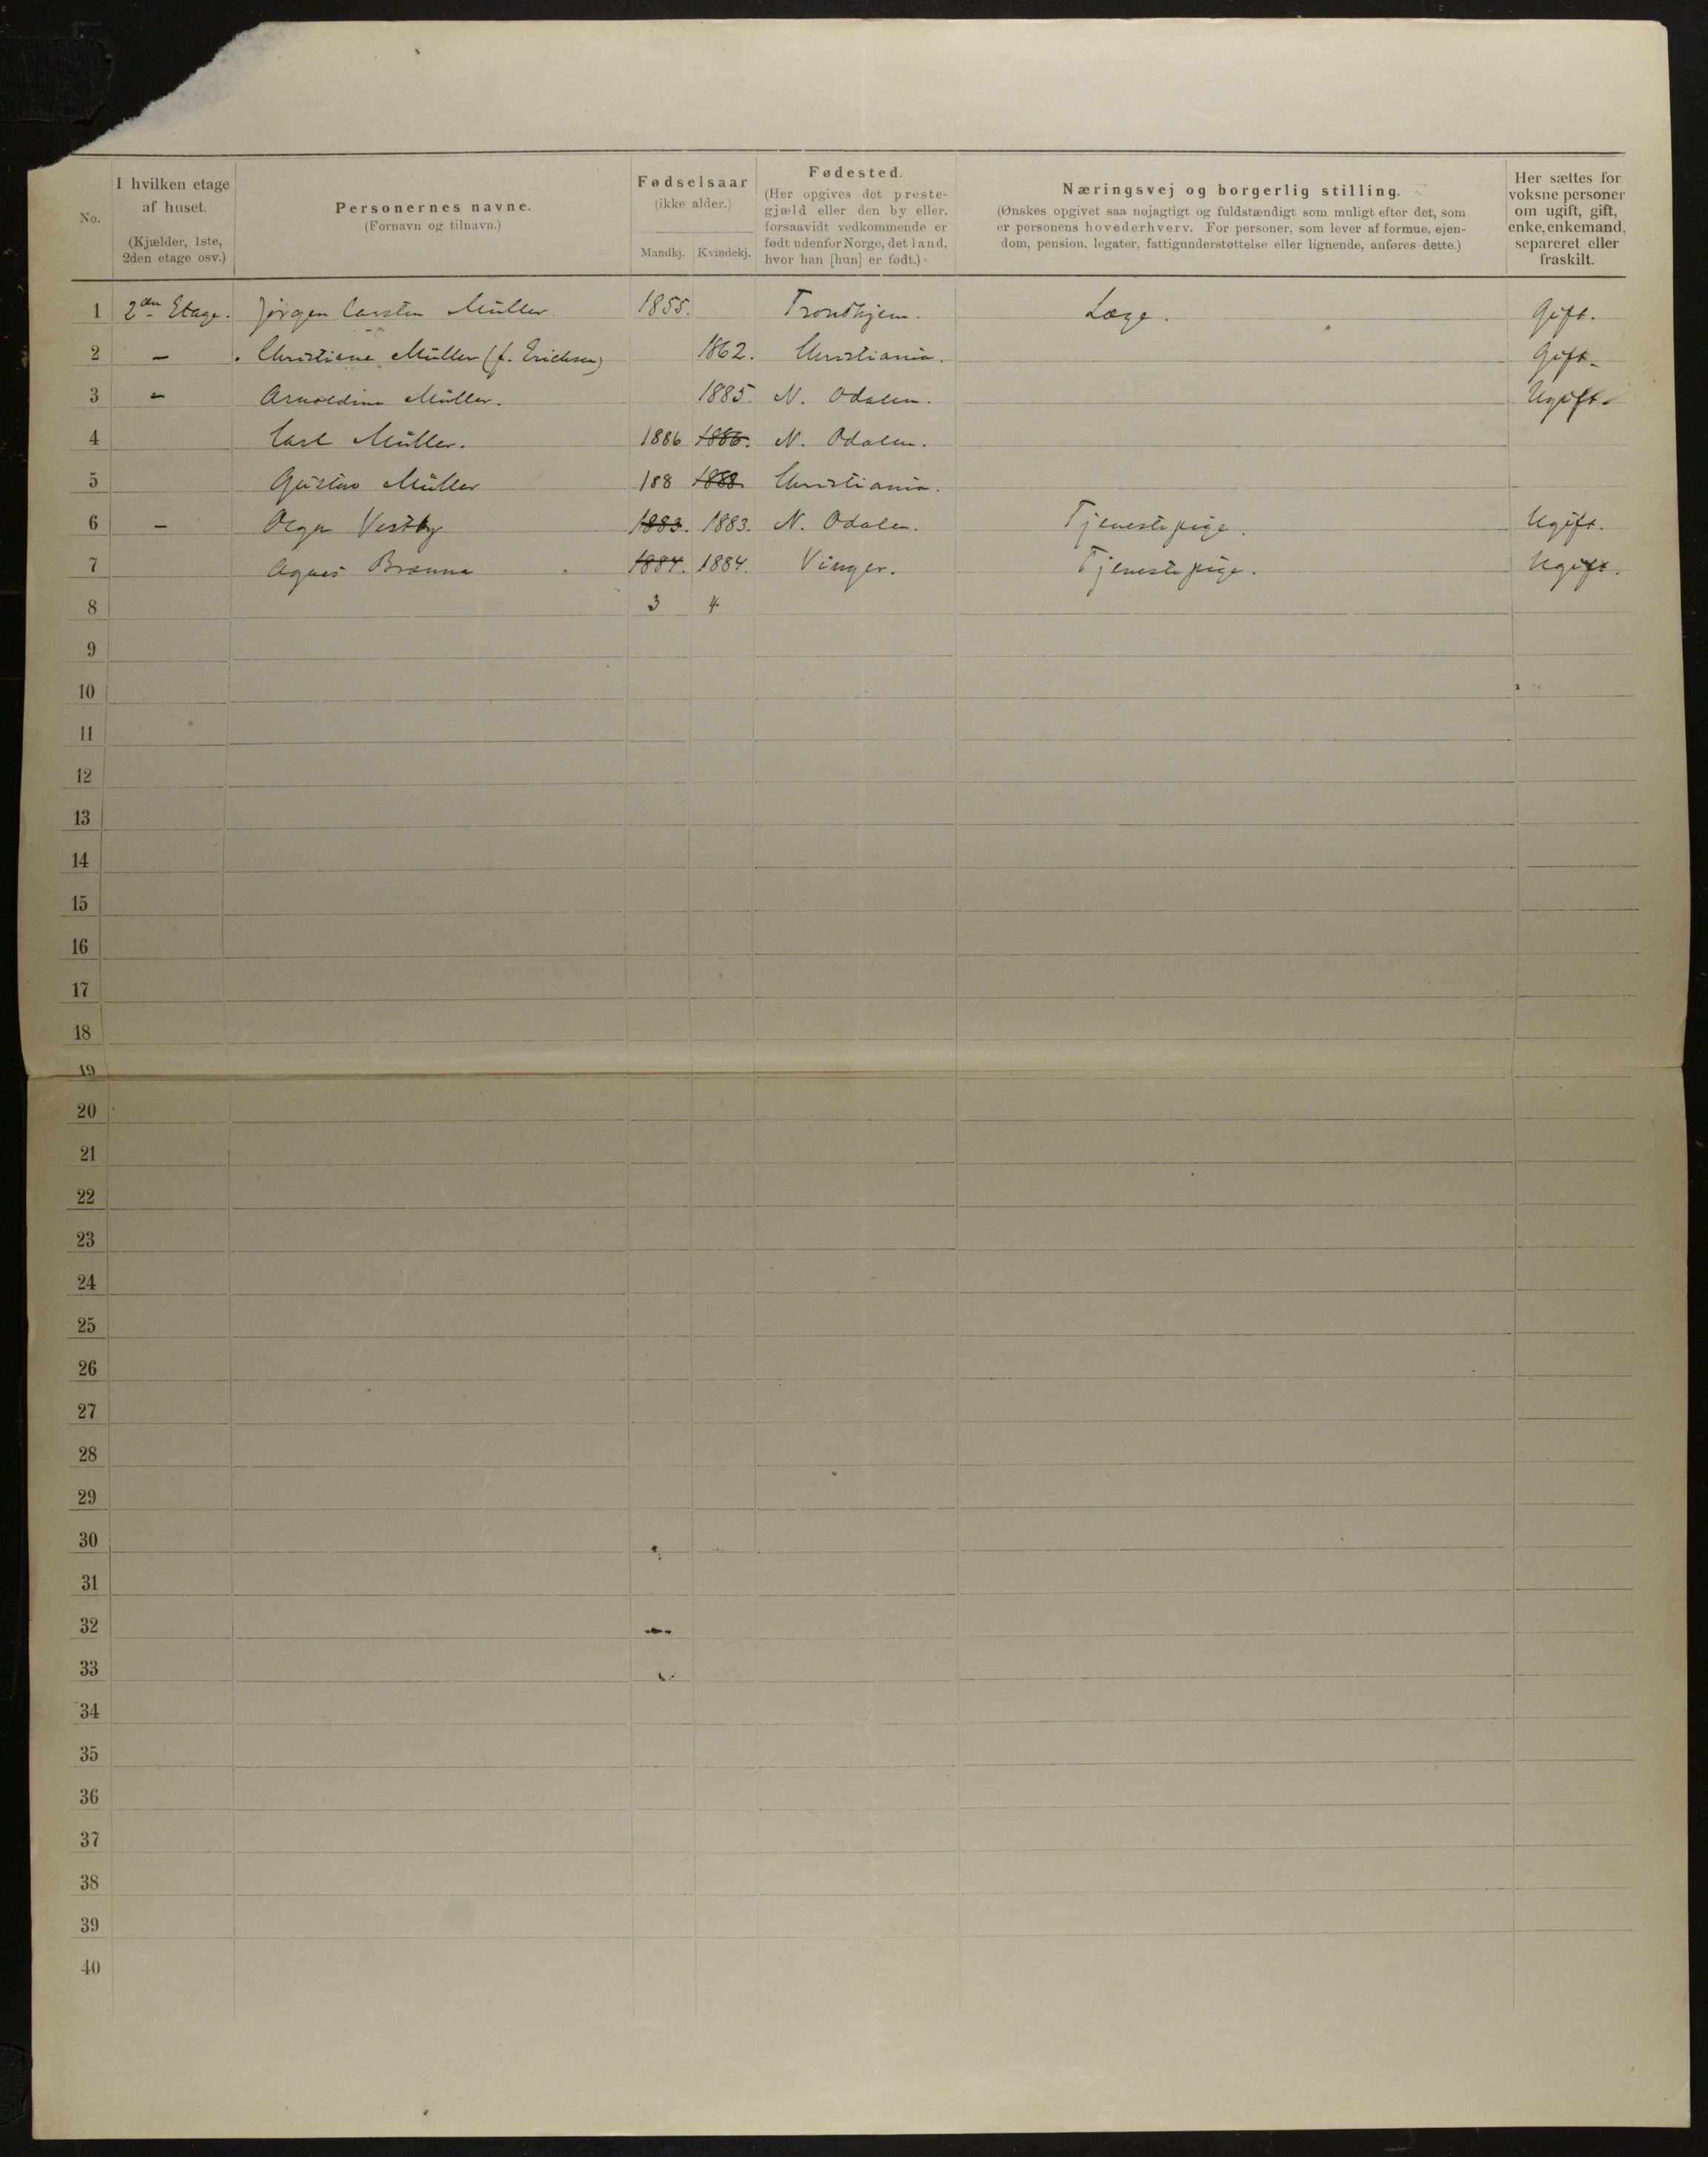 No.
I hvilken etage
af huset.
(Kjælder, 1ste,
2den etage osv.)
Personernes navne.
(Fornavn og tilnavn.)
Fødselsaar
(ikke alder.)
Mandkj. Kvindekj.
Fødested.
(Her opgives det preste-
gjæld eller den by eller,
forsaavidt vedkommende er
født udenfor Norge, det land,
hvor han [hun] er født.)
Næringsvej og borgerlig stilling.
(Ønskes opgivet saa nøjagtigt og fuldstændigt som muligt efter det, som
er personens hovederhverv. For personer, som lever af formue, ejen-
dom, pension, legater, fattigunderstøttelse eller lignende, anføres dette.)
Her sættes for
voksne personer
om ugift, gift,
enke, enkemand,
separeret eller
fraskilt.
1 2den Etage. Jørgen Carsten Müller 1855. Trondhjem. Læge. Gift.
2 – Christiane Müller (f. Erichsen) 1862. Christiania. Gift.
3 – Arnoldine Müller. 1885. N. Odalen. Ugift.
4 Carl Müller. 1886 1886. N. Odalen.
5 Gustav Müller 188 1888. Christiania.
6 – Olga Vestby 1883. 1883. N. Odalen. Tjenestepige. Ugift.
7 Agnes 1884. 1884. Vinger. Tjenestepige. Ugift.
8 3 4
9
10
11
12
13
14
15
16
17
18
19
20
21
22
23
24
25
26
27
28
29
30
31
32
33
34
35
36
37
38
39
40